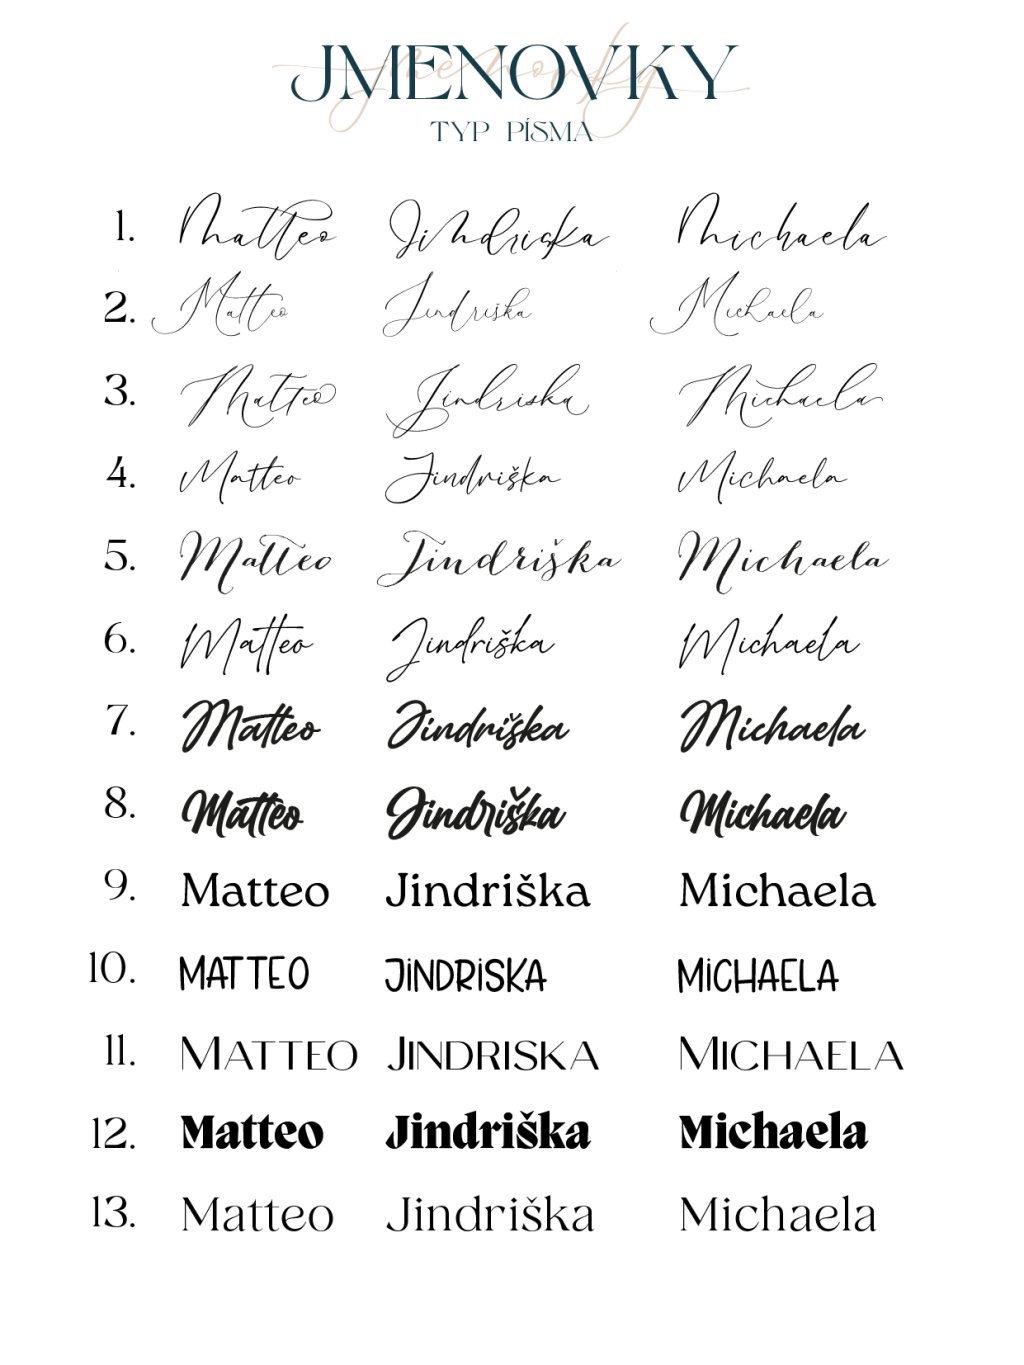 JMENOVKY
jmenovky
TYP PÍSMA
1. Matteo Jindriska Michaela
2. Matteo Jindriška Michaela
3. Matteo Jindriska Michaela
4. Matteo Jindriška Michaela
5. Matteo Jindriška Michaela
6. Matteo Jindriška Michaela
7. Matteo Jindriška Michaela
8. Matteo Jindriška Michaela
9. Matteo Jindriška Michaela
10. MATTEO JiNDRiSKA MiCHAELA
11. MATTEO JINDRISKA MICHAELA
12. Matteo Jindriška Michaela
13. Matteo Jindriška Michaela